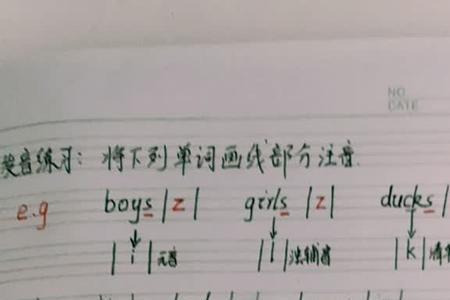 NO.
DATE
类音练习：将下列单词画线部分注音.
e.g boys |z| girls |z| ducks |
|i|元音 |l|浊辅音 |k|清辅